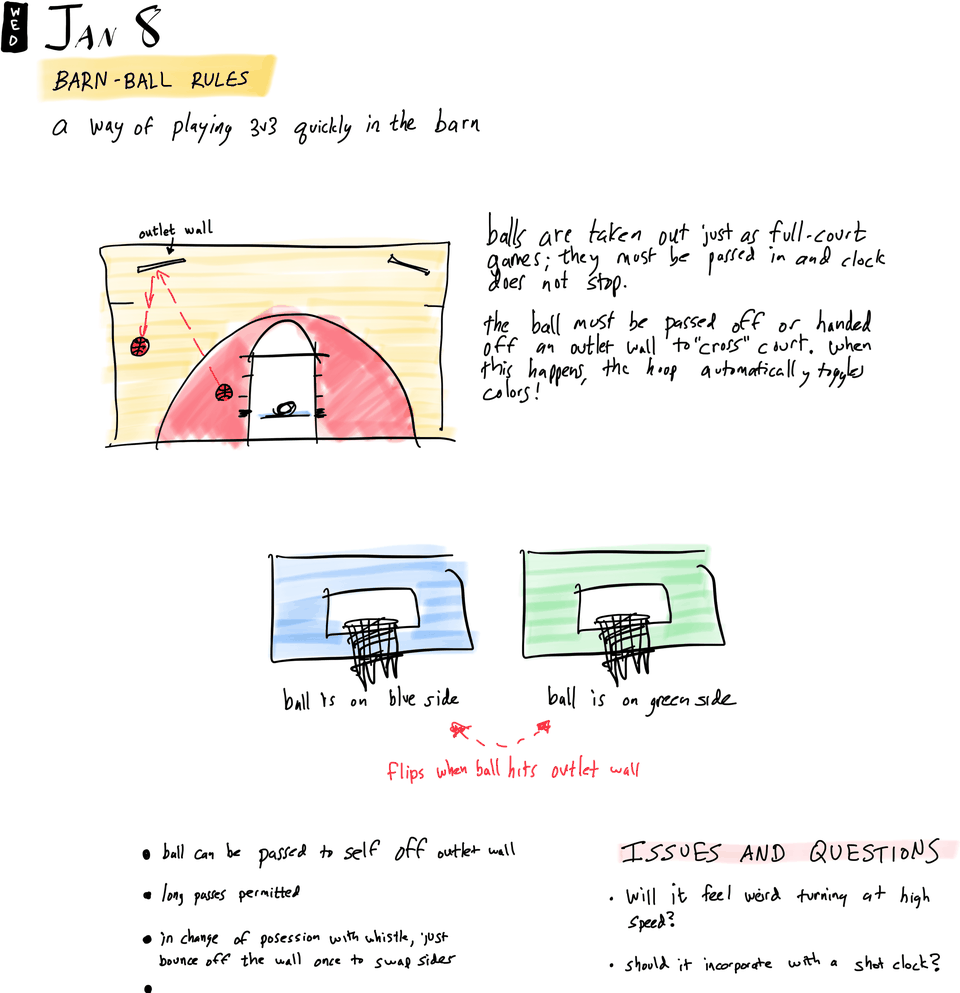 WED
JAN 8
BARN-BALL RULES
a way of playing 3v3 quickly in the barn
outlet wall
balls are taken out just as full-court
games; they must be passed in and clock
does not stop.
the ball must be passed off or handed
off an outlet wall to "cross" court. when
this happens, the hoop automatically toggles
colors!
ball is on blue side
ball is on green side
flips when ball hits outlet wall
• ball can be passed to self off outlet wall
• long passes permitted
• in change of posession with whistle, just
bounce off the wall once to swap sides
•
ISSUES AND QUESTIONS
• Will it feel weird turning at high
speed?
• should it incorporate with a shot clock?